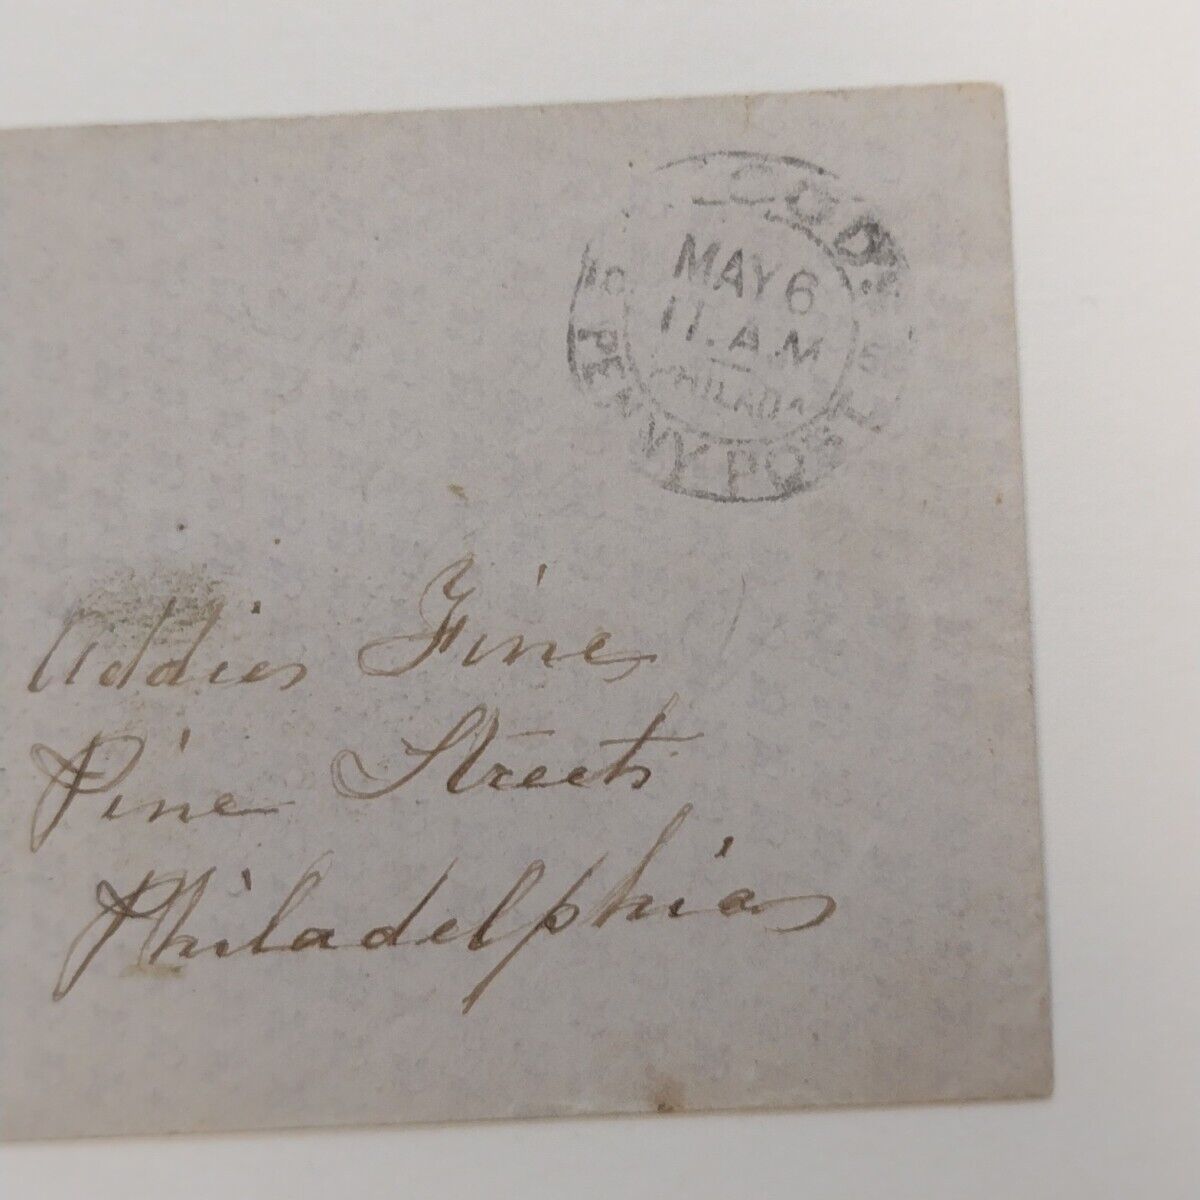 MAY 6
11. A.M
PHILADA
PENNY POS
Addies Fine
Pine Street
Philadelphia